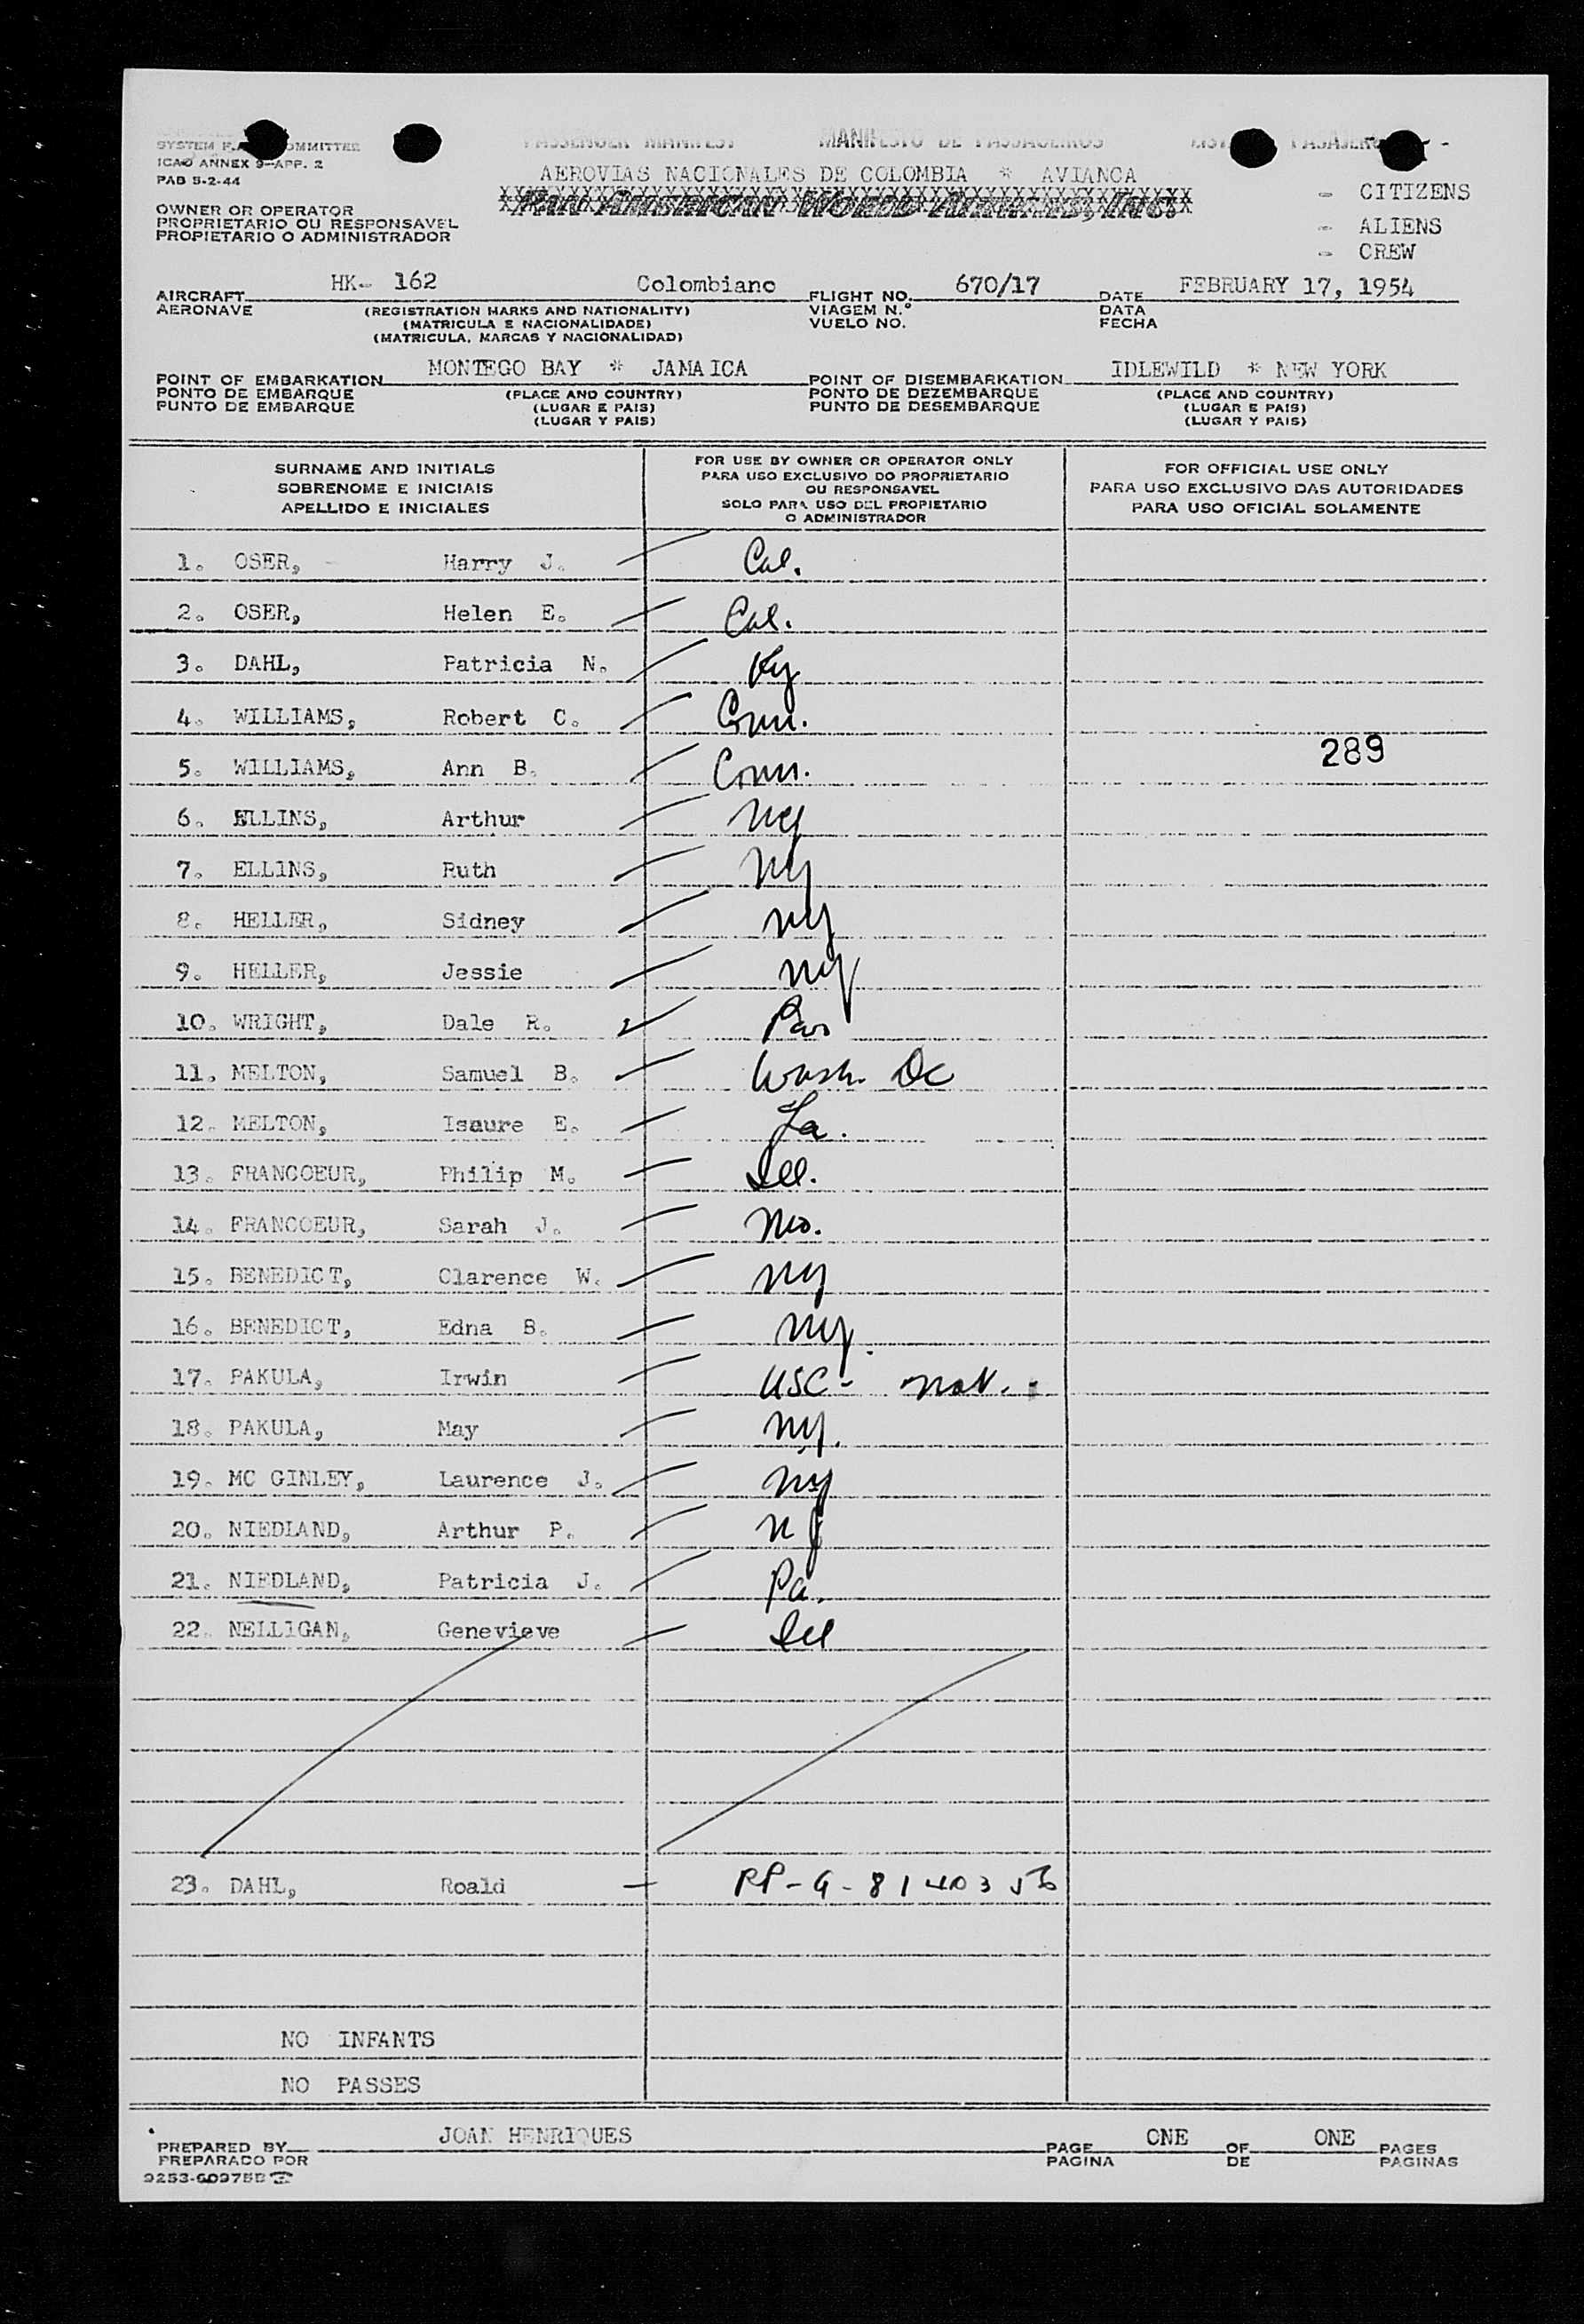 SYSTEM F. COMMITTEE
ICAO ANNEX 9-APP. 2
PAB 5-2-44
PASSENGER MANIFEST MANIFESTO DE PASSAGEIROS
AEROVIAS NACIONALES DE COLOMBIA * AVIANCA
Pan American World Airways, Inc.
- CITIZENS
- ALIENS
- CREW
OWNER OR OPERATOR
PROPRIETARIO OU RESPONSAVEL
PROPIETARIO O ADMINISTRADOR
AIRCRAFT HK- 162 Colombiano FLIGHT NO. 670/17 DATE FEBRUARY 17, 1954
AERONAVE (REGISTRATION MARKS AND NATIONALITY) VIAGEM N.º DATA
(MATRICULA E NACIONALIDADE) VUELO NO. FECHA
(MATRICULA, MARCAS Y NACIONALIDAD)
POINT OF EMBARKATION MONTEGO BAY * JAMAICA POINT OF DISEMBARKATION IDLEWILD * NEW YORK
PONTO DE EMBARQUE (PLACE AND COUNTRY) PONTO DE DEZEMBARQUE (PLACE AND COUNTRY)
PUNTO DE EMBARQUE (LUGAR E PAIS) PUNTO DE DESEMBARQUE (LUGAR E PAIS)
(LUGAR Y PAIS) (LUGAR Y PAIS)
SURNAME AND INITIALS
SOBRENOME E INICIAIS
APELLIDO E INICIALES
FOR USE BY OWNER OR OPERATOR ONLY
PARA USO EXCLUSIVO DO PROPRIETARIO
OU RESPONSAVEL
SOLO PARA USO DEL PROPIETARIO
O ADMINISTRADOR
FOR OFFICIAL USE ONLY
PARA USO EXCLUSIVO DAS AUTORIDADES
PARA USO OFICIAL SOLAMENTE
1. OSER, Harry J. Cal.
2. OSER, Helen E. Cal.
3. DAHL, Patricia N. Ky
4. WILLIAMS, Robert C. Conn.
289
5. WILLIAMS, Ann B. Conn.
6. ELLINS, Arthur NY
7. ELLINS, Ruth NY
8. HELLER, Sidney NY
9. HELLER, Jessie NY
10. WRIGHT, Dale R.
11. MELTON, Samuel B. Wash. DC
12. MELTON, Isaure E. La.
13. FRANCOEUR, Philip M. Ill.
14. FRANCOEUR, Sarah J. Mo.
15. BENEDICT, Clarence W. NY
16. BENEDICT, Edna S. NY.
17. PAKULA, Irwin USC - nat.
18. PAKULA, May NY.
19. MC GINLEY, Laurence J. NY
20. NIEDLAND, Arthur P. NJ
21. NIEDLAND, Patricia J. Pa.
22. NELLIGAN, Genevieve Ill
23. DAHL, Roald
NO INFANTS
NO PASSES
PREPARED BY JOAN HENRIQUES PAGE ONE OF ONE PAGES
PREPARADO POR PAGINA DE PAGINAS